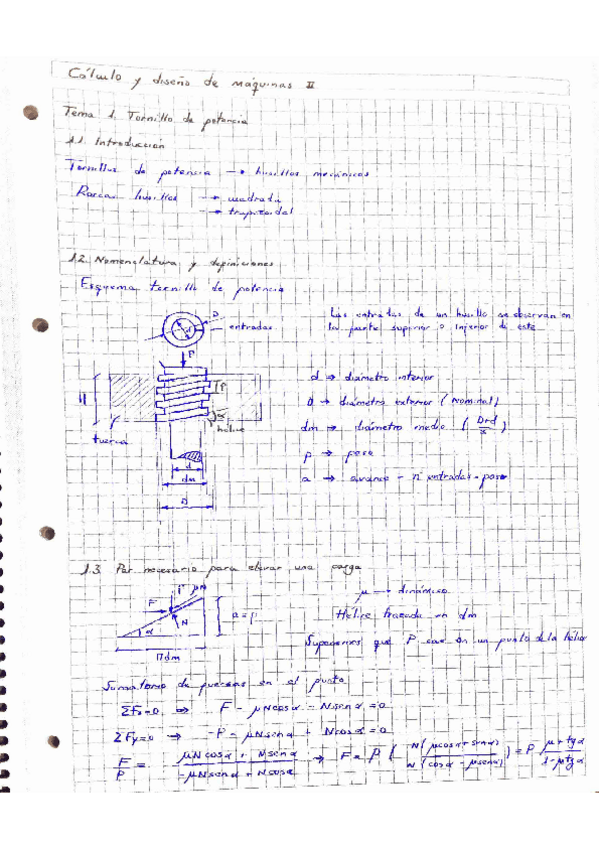 Cálculo y diseño de máquinas II
Tema 1. Tornillo de potencia
1.1. Introducción
Tornillos de potencia → husillos mecánicos
Roscas husillos → cuadrada
→ trapezoidal
1.2. Nomenclatura y definiciones
Esquema tornillo de potencia
D
d
entradas
Las entradas de un husillo se observan en
la parte superior o inferior de este
P
H
p
α
hélice
tuerca
d
dm
D
d → diámetro interior
D → diámetro exterior (Nominal)
dm → diámetro medio (D+d/2)
p → paso
a → avance = nº entradas · paso
1.3. Par necesario para elevar una carga
F
P
μN
N
α
πdm
μ → dinámico
Hélice trazada en dm
Suponemos que P cae en un punto de la hélice
Sumatorio de fuerzas en el punto
ΣFx=0 ⇒ F - μNcosα - Nsenα = 0
ΣFy=0 → -P - μNsenα + Ncosα = 0
F/P = μNcosα + Nsenα / -μNsenα + Ncosα → F = P (N(μcosα+senα) / N(cosα - μsenα)) = P μ+tgα / 1-μtgα